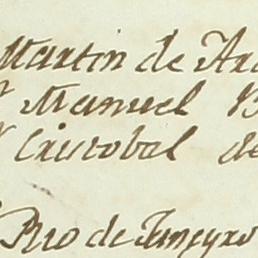 Martin de
Manuel
Cristobal de
Rio de Janeyro